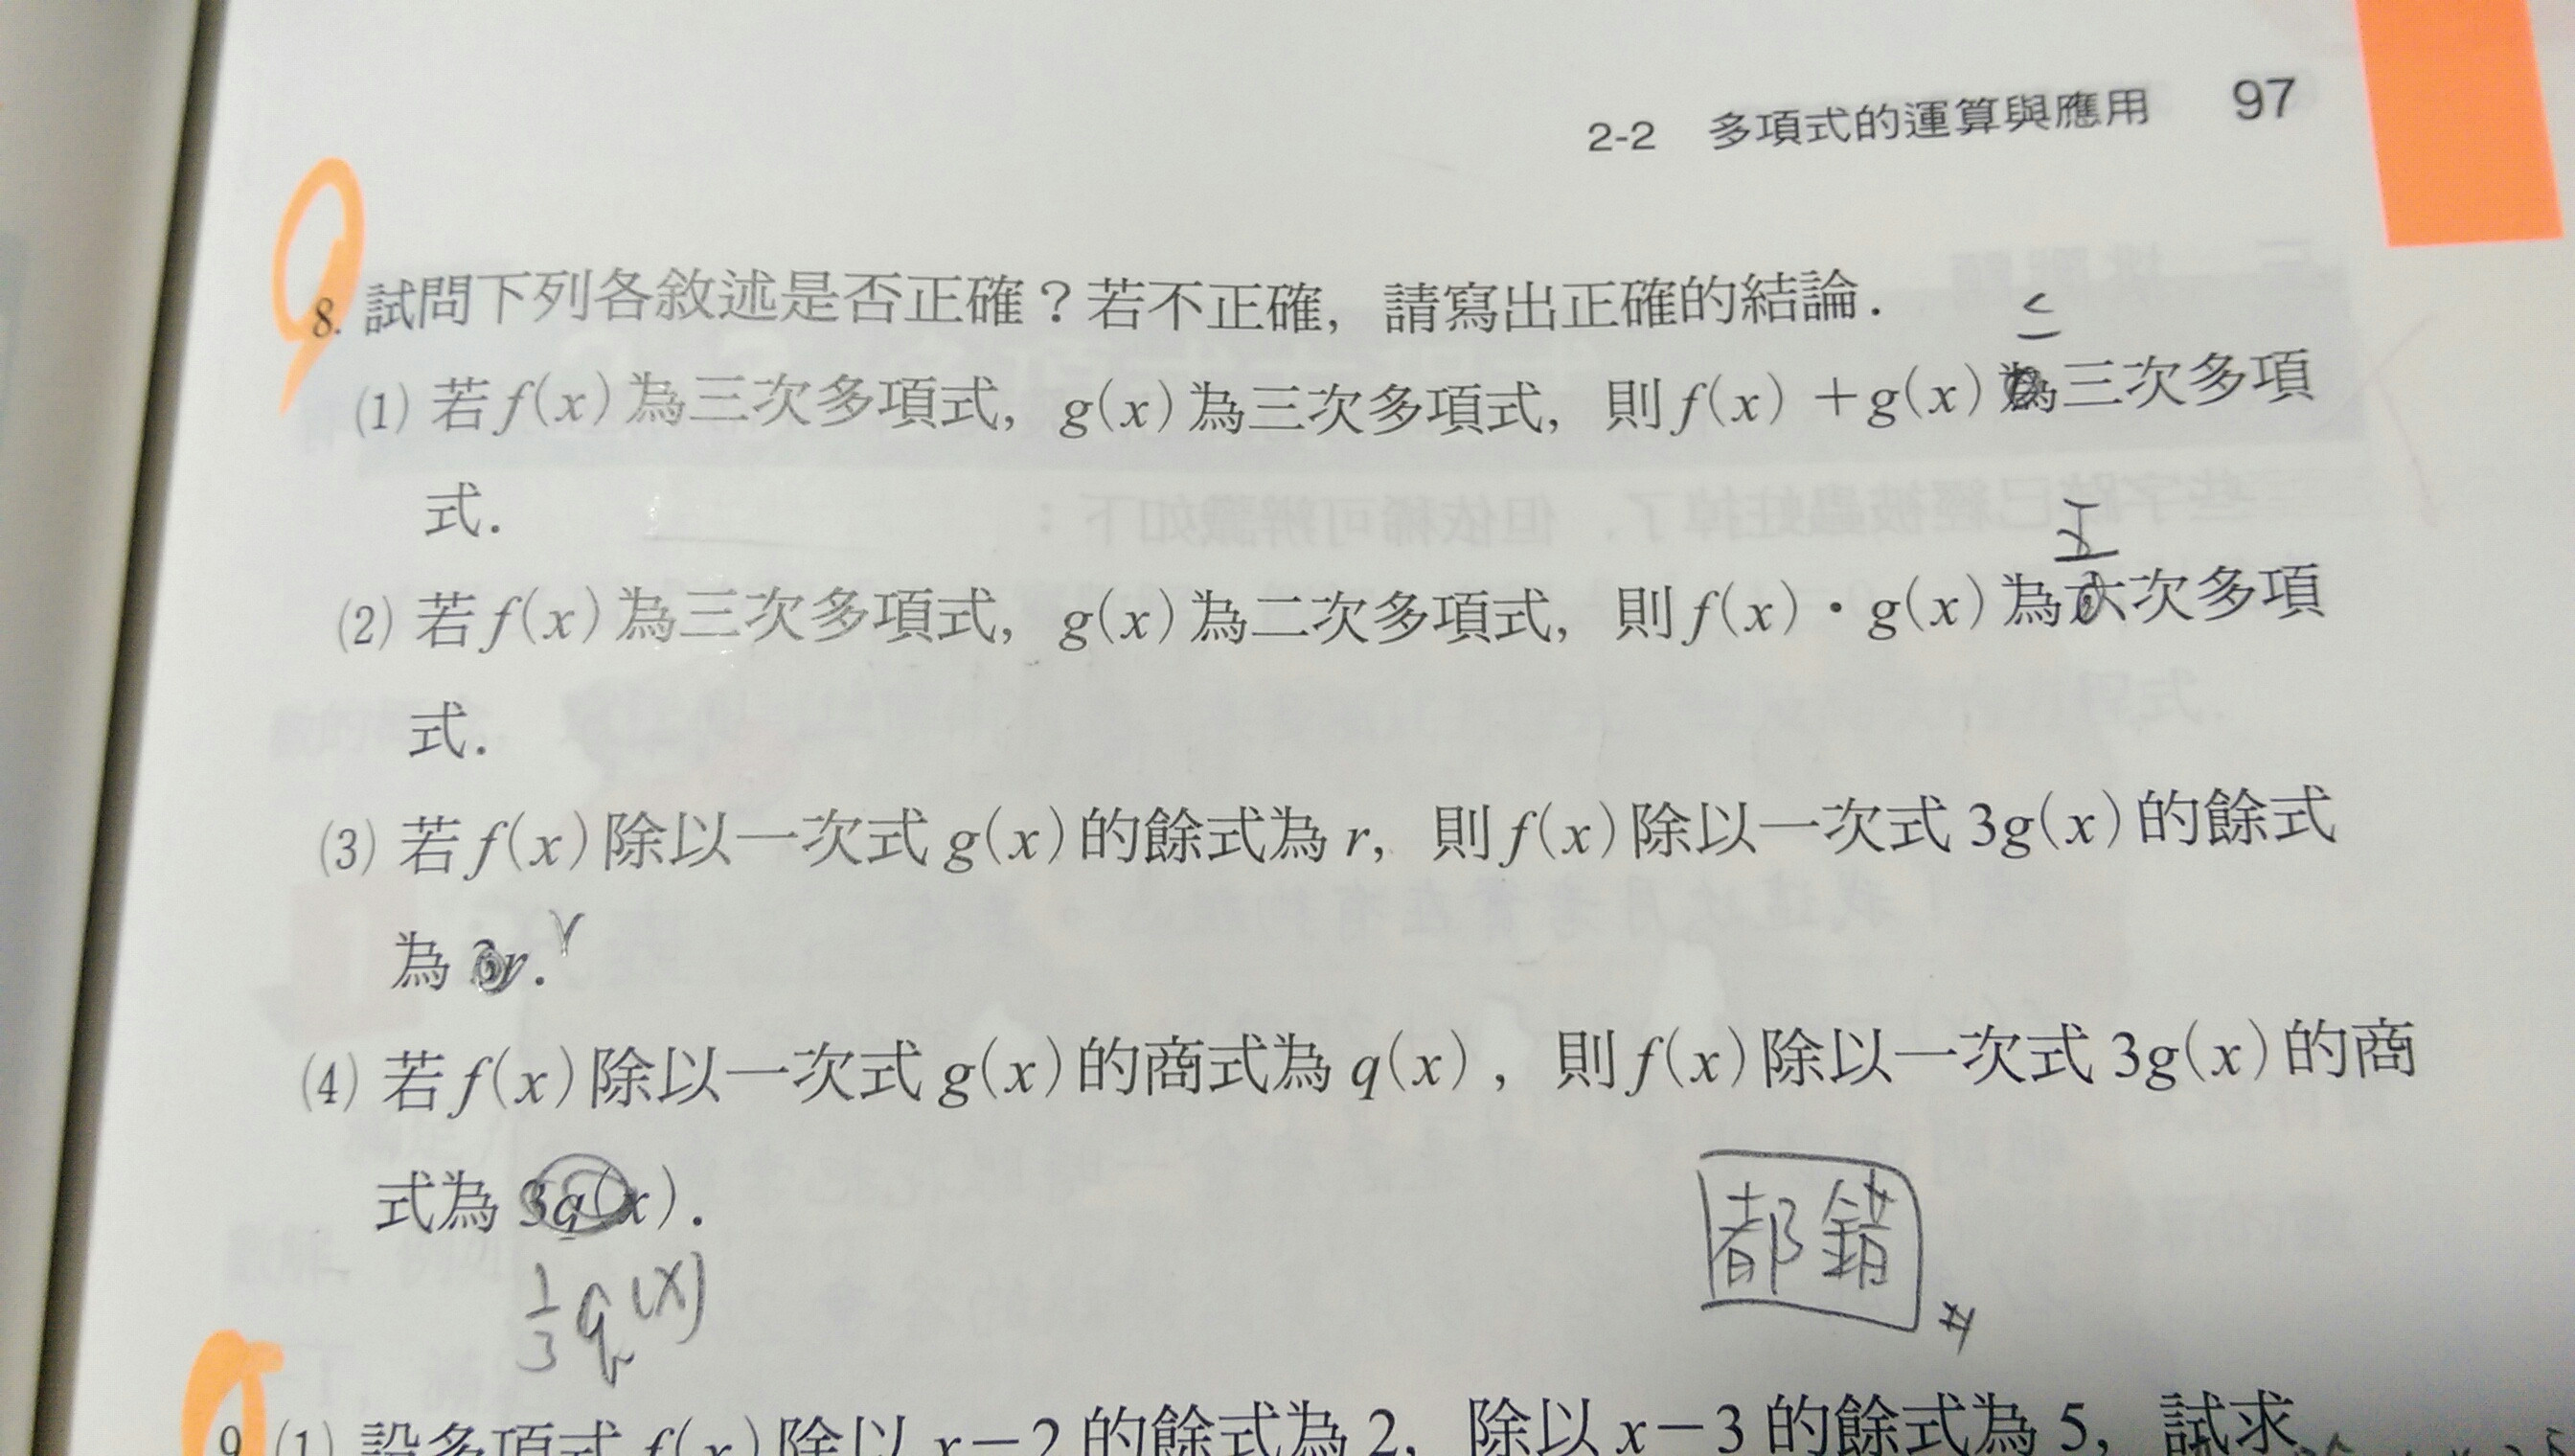 2-2 多項式的運算與應用 97
8. 試問下列各敘述是否正確？若不正確，請寫出正確的結論．
≤
(1) 若 f(x) 為三次多項式，g(x) 為三次多項式，則 f(x) + g(x) 為三次多項
式．
五
(2) 若 f(x) 為三次多項式，g(x) 為二次多項式，則 f(x)・g(x) 為六次多項
式．
(3) 若 f(x) 除以一次式 g(x) 的餘式為 r，則 f(x) 除以一次式 3g(x) 的餘式
為 3r． r
(4) 若 f(x) 除以一次式 g(x) 的商式為 q(x)，則 f(x) 除以一次式 3g(x) 的商
式為 3q(x)．
都錯 #
1/3 q(x)
9. (1) 設多項式 f(x) 除以 x－2 的餘式為 2，除以 x－3 的餘式為 5，試求